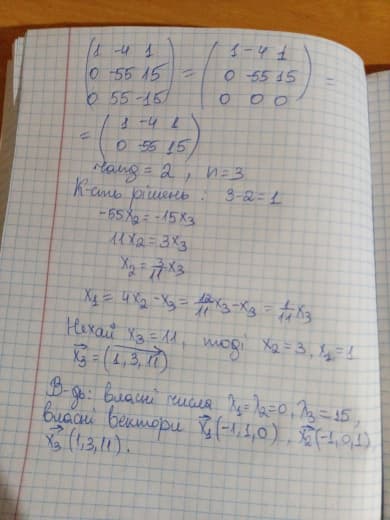 ( 1 -4 1 ) ( 1 -4 1 )
( 0 -55 15 ) = ( 0 -55 15 ) =
( 0 55 -15 ) ( 0 0 0 )
= ( 1 -4 1 )
( 0 -55 15 )
rang = 2, n = 3
К-сть рішень: 3-2=1
-55x₂ = -15x₃
11x₂ = 3x₃
x₂ = 3/11 x₃
x₁ = 4x₂ - x₃ = 12/11 x₃ - x₃ = 1/11 x₃
Нехай x₃ = 11, тоді x₂ = 3, x₁ = 1
x₃ = (1, 3, 11)
В-дь: власні числа λ₁ = λ₂ = 0, λ₃ = 15,
власні вектори x₁ (-1, 1, 0), x₂ (-1, 0, 1),
x₃ (1, 3, 11).